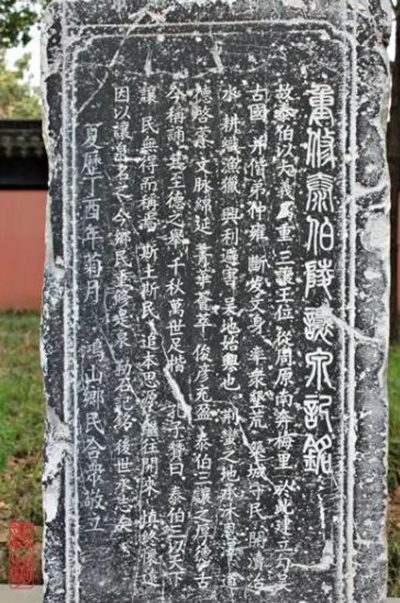 重修泰伯陵讓泉記銘
故泰伯以大義為重 三讓王位 從周原南奔梅里 於此建立勾吴
古國 并偕弟仲雍 斷发文身 率衆墾荒 築城守民 開瀆治
水 耕織漁獵 興利避害 吴地始興也 荆蛮之地承沐恩澤 道
德啓蒙 文脉綿延 菁華薈萃 俊彦充盈 泰伯三讓之厚德 古
今稱誦 其至德之舉 千秋萬世足楷 孔子赞曰 泰伯三以天下
讓 民無得而稱焉 斯土斯民 追本思源 繼往開來 慎終懷遠
因以讓泉名之 今鄉民重修是泉 勒石記銘 後世永志矣
夏歷丁酉年菊月 鴻山鄉民合衆敬立